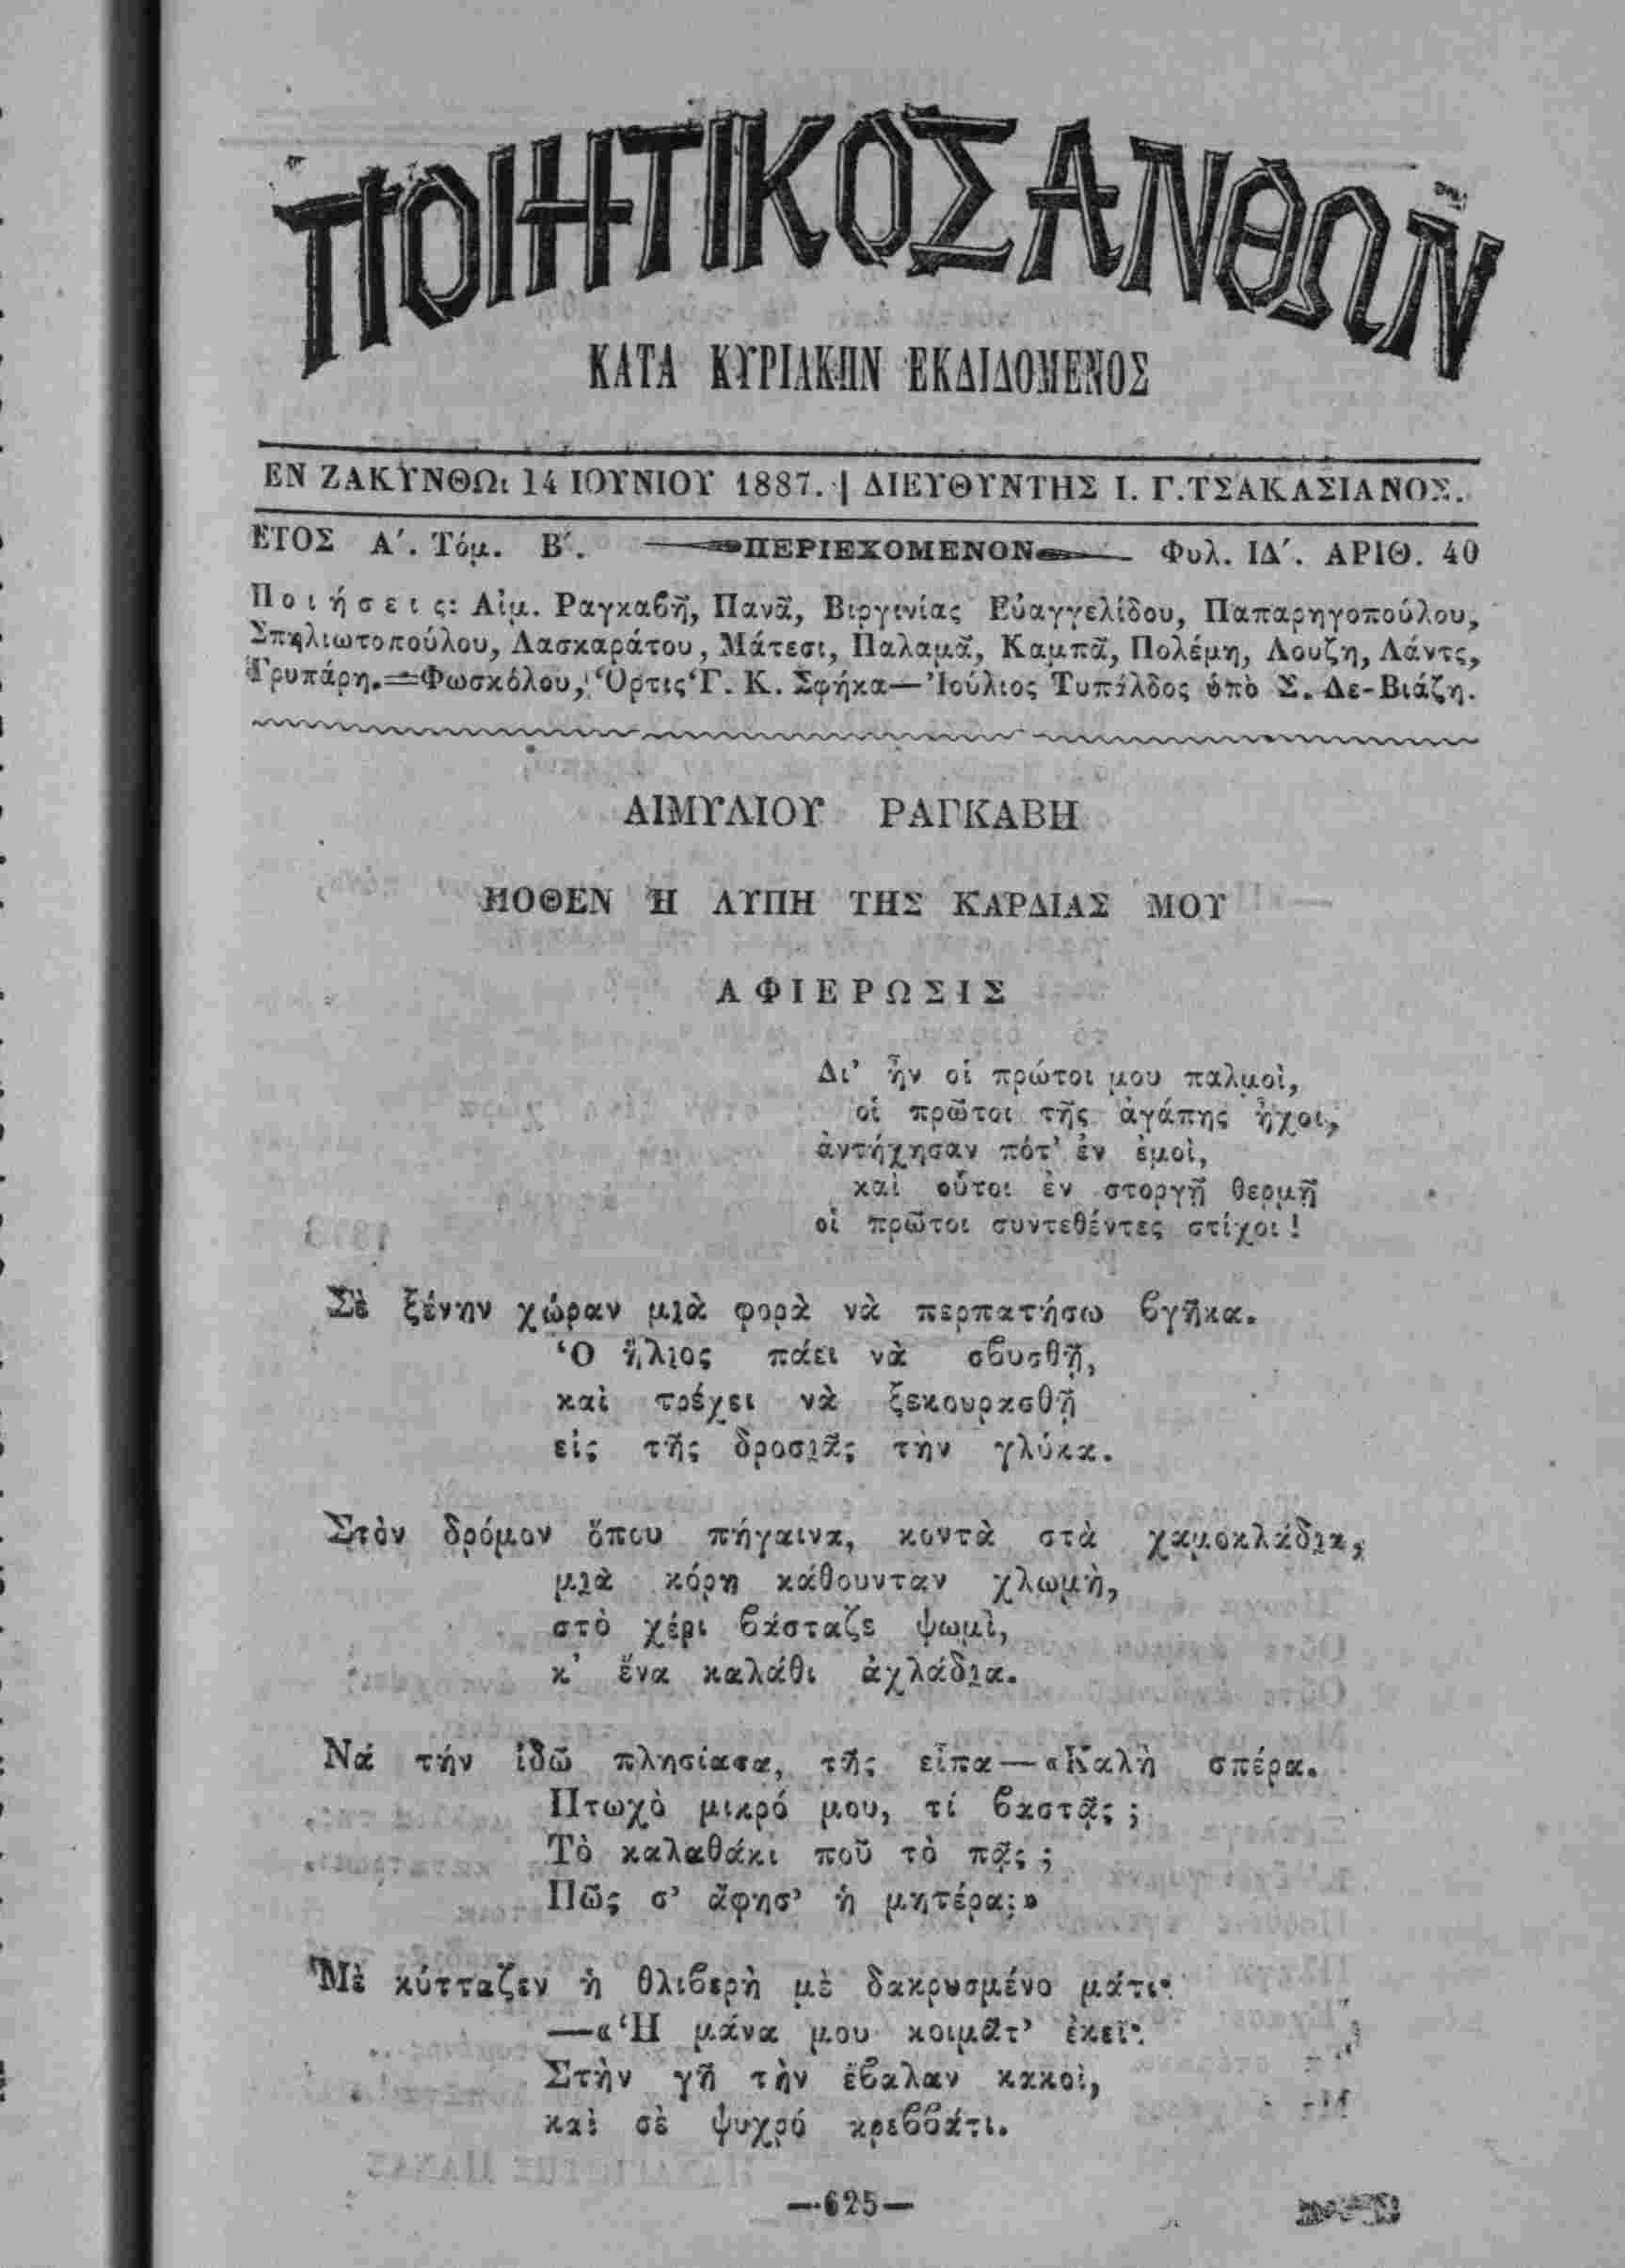 ΠΟΙΗΤΙΚΟΣ ΑΝΘΩΝ
ΚΑΤΑ ΚΥΡΙΑΚΗΝ ΕΚΔΙΔΟΜΕΝΟΣ
ΕΝ ΖΑΚΥΝΘΩι 14 ΙΟΥΝΙΟΥ 1887. | ΔΙΕΥΘΥΝΤΗΣ Ι. Γ. ΤΣΑΚΑΣΙΑΝΟΣ.
ΕΤΟΣ Α΄. Τόμ. Β΄. ΠΕΡΙΕΧΟΜΕΝΟΝ Φυλ. ΙΔ΄. ΑΡΙΘ. 40
Ποιήσεις: Αἰμ. Ραγκαβῆ, Πανᾶ, Βιργινίας Εὐαγγελίδου, Παπαρηγοπούλου,
Σπηλιωτοπούλου, Λασκαράτου, Μάτεσι, Παλαμᾶ, Καμπᾶ, Πολέμη, Λουζη, Λάντς,
Γρυπάρη.—Φωσκόλου, Ὄρτις Γ. Κ. Σφήκα—Ἰούλιος Τυπάλδος ὑπὸ Σ. Δε-Βιάζη.
ΑΙΜΥΛΙΟΥ ΡΑΓΚΑΒΗ
ΠΟΘΕΝ Ἡ ΛΥΠΗ ΤΗΣ ΚΑΡΔΙΑΣ ΜΟΥ
ΑΦΙΕΡΩΣΙΣ
Δι' ἣν οἱ πρώτοι μου παλμοὶ,
οἱ πρῶτοι τῆς ἀγάπης ἠχοι,
ἀντήχησαν πότ' ἐν ἐμοὶ,
καὶ οὗτοι ἐν στοργῇ θερμῇ
οἱ πρῶτοι συντεθέντες στίχοι!
Σὲ ξένην χώραν μιὰ φορὰ νὰ περπατήσω βγῆκα.
Ὁ ἥλιος πάει νὰ σβυσθῇ,
καὶ τρέχει νὰ ξεκουρασθῇ
εἰς τῆς δροσιᾶς τὴν γλύκα.
Στὸν δρόμον ὅπου πήγαινα, κοντὰ στὰ χαμοκλάδια,
μιὰ κόρη κάθουνταν χλωμὴ,
στὸ χέρι βάσταζε ψωμὶ,
κ' ἕνα καλάθι ἀχλάδια.
Νά τήν ἰδῶ πλησίασα, τῆς εἶπα—«Καλὴ σπέρα.
Πτωχὸ μικρό μου, τί βαστᾷς;
Τὸ καλαθάκι ποῦ τὸ πᾷς;
Πῶς σ' ἄφησ' ἡ μητέρα;»
Μὲ κύτταζεν ἡ θλιβερὴ μὲ δακρυσμένο μάτι·
—«Ἡ μάνα μου κοιμᾶτ' ἐκεῖ·
Στὴν γῆ τὴν ἔβαλαν κακοὶ,
καὶ σὲ ψυχρό κρεββάτι.
—625—